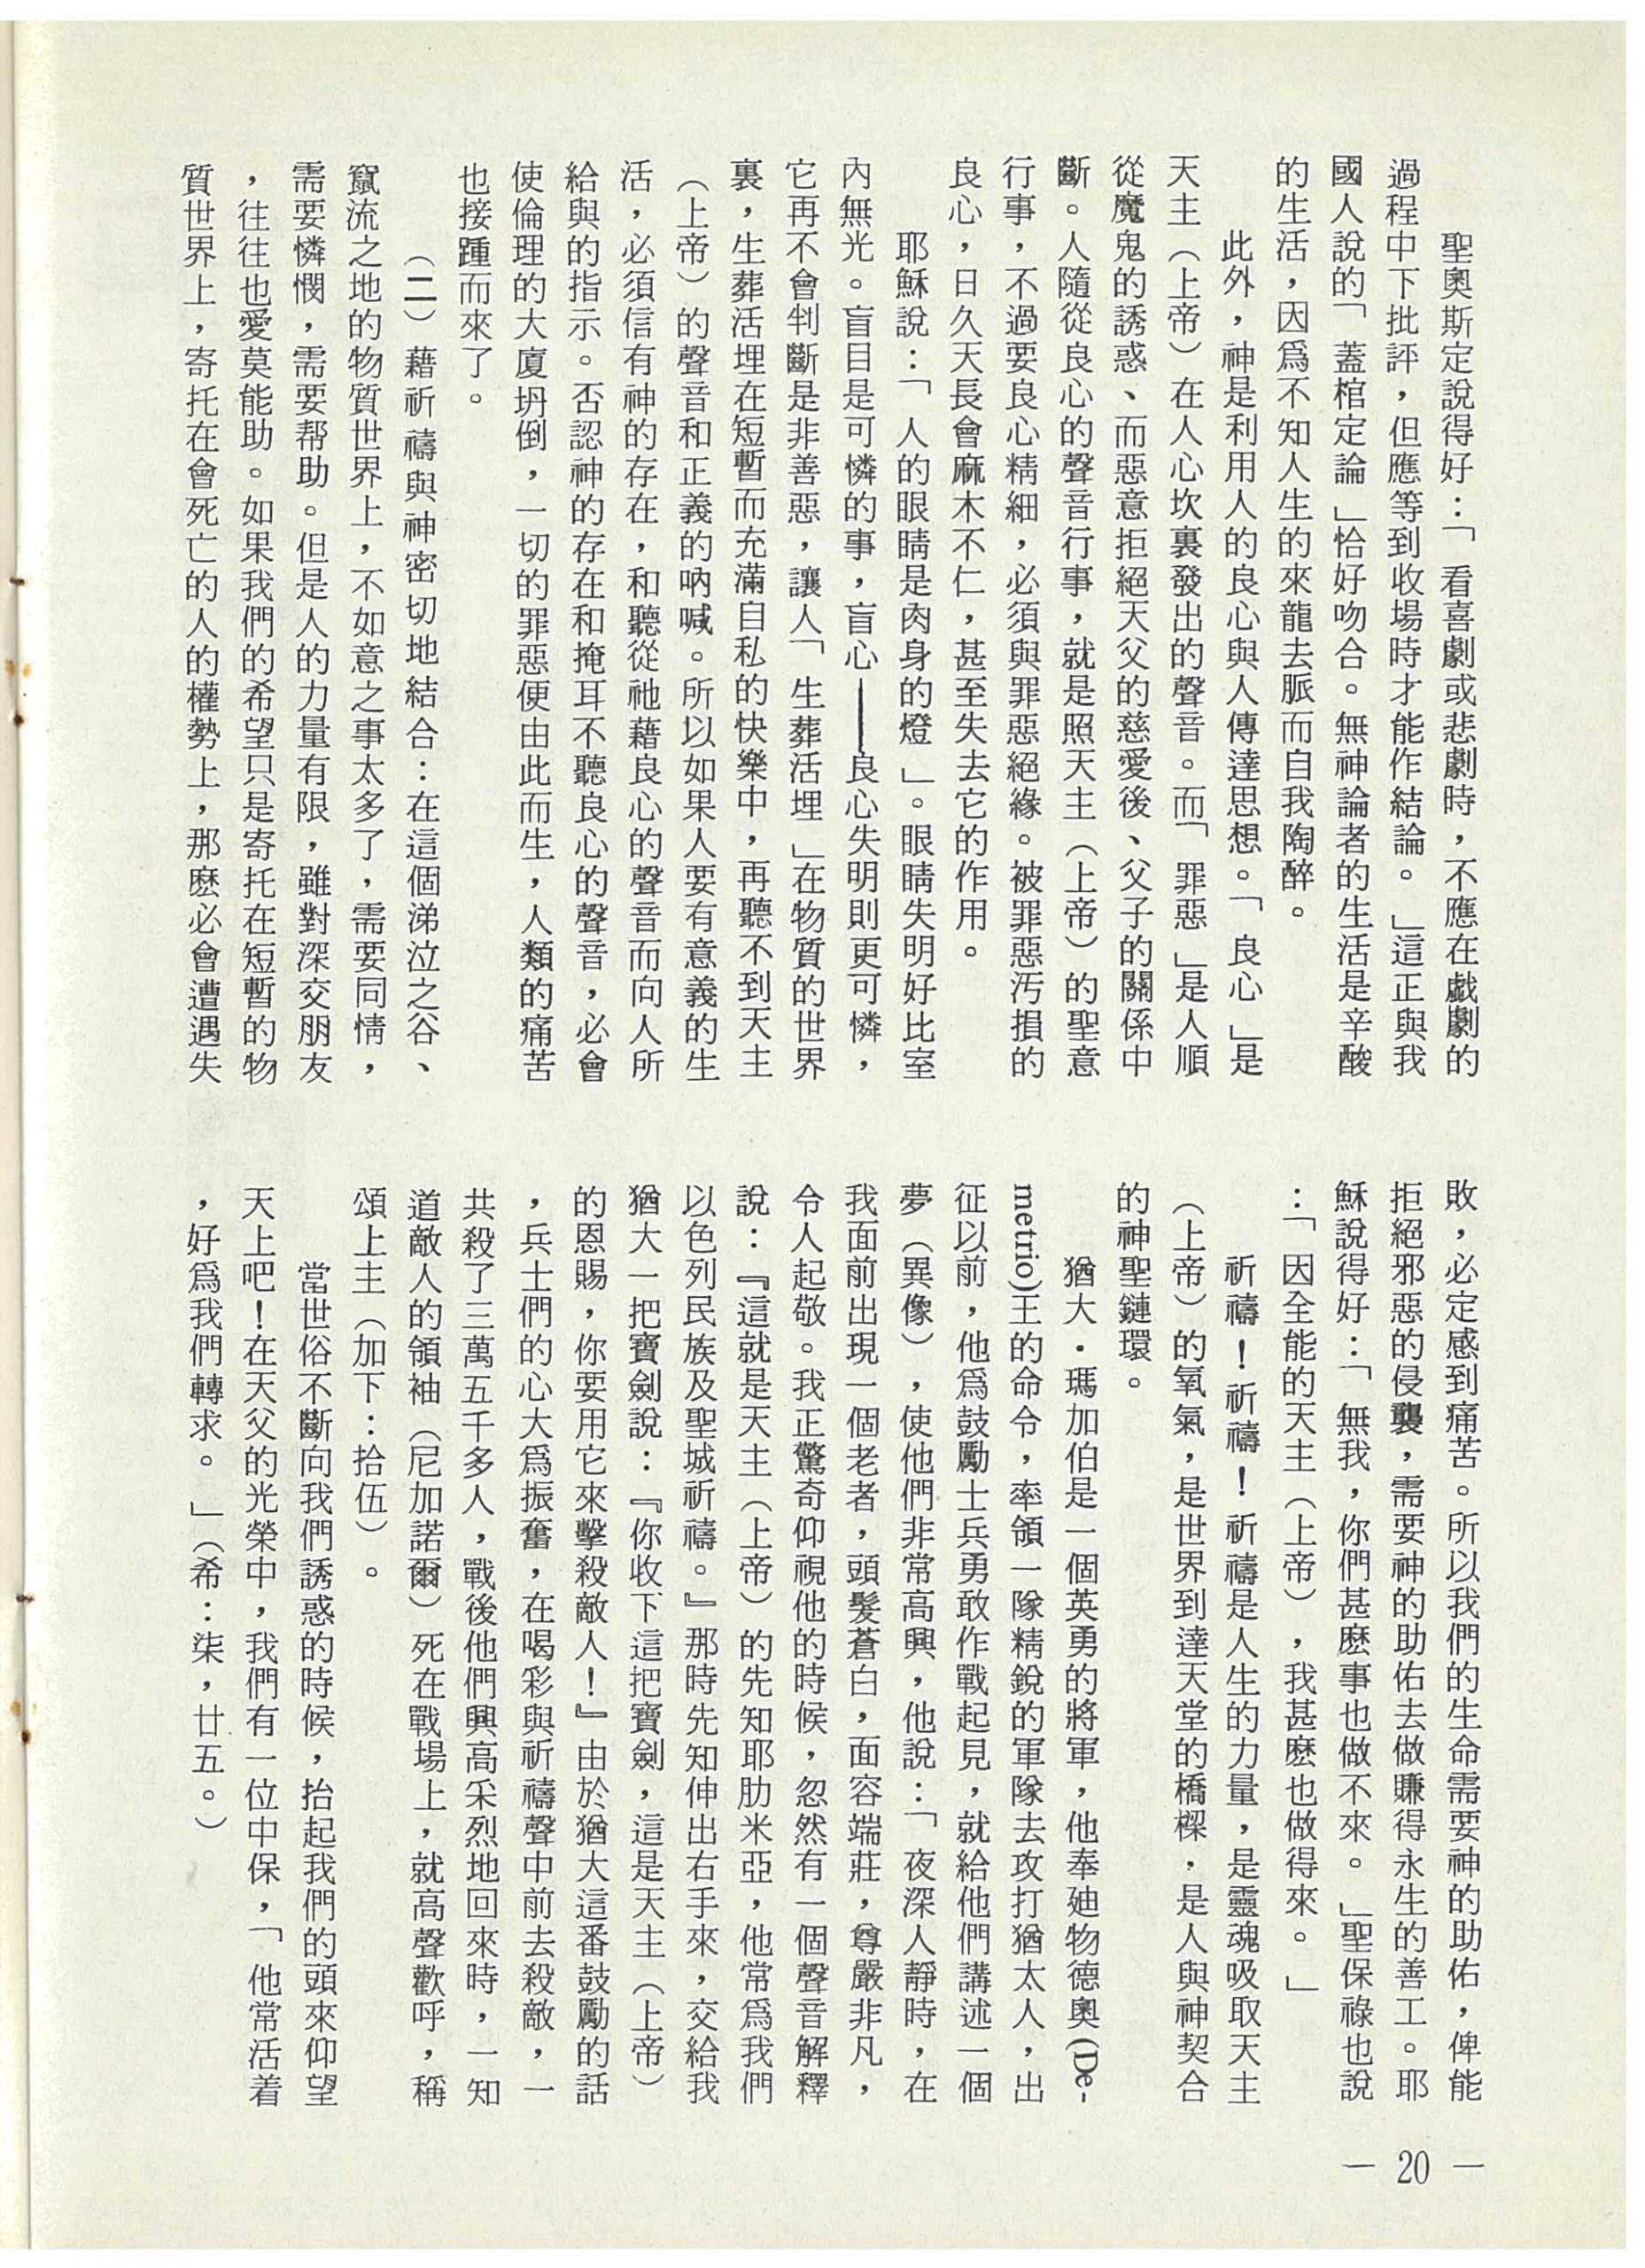 聖奧斯定說得好：「看喜劇或悲劇時，不應在戲劇的
過程中下批評，但應等到收場時才能作結論。」這正與我
國人說的「蓋棺定論」恰好吻合。無神論者的生活是辛酸
的生活，因爲不知人生的來龍去脈而自我陶醉。
此外，神是利用人的良心與人傳達思想。「良心」是
天主（上帝）在人心坎裏發出的聲音。而「罪惡」是人順
從魔鬼的誘惑、而惡意拒絕天父的慈愛後、父子的關係中
斷。人隨從良心的聲音行事，就是照天主（上帝）的聖意
行事，不過要良心精細，必須與罪惡絕緣。被罪惡汚損的
良心，日久天長會麻木不仁，甚至失去它的作用。
耶穌說：「人的眼睛是肉身的燈」。眼睛失明好比室
內無光。盲目是可憐的事，盲心——良心失明則更可憐，
它再不會判斷是非善惡，讓人「生葬活埋」在物質的世界
裏，生葬活埋在短暫而充滿自私的快樂中，再聽不到天主
（上帝）的聲音和正義的吶喊。所以如果人要有意義的生
活，必須信有神的存在，和聽從祂藉良心的聲音而向人所
給與的指示。否認神的存在和掩耳不聽良心的聲音，必會
使倫理的大廈坍倒，一切的罪惡便由此而生，人類的痛苦
也接踵而來了。
（二）藉祈禱與神密切地結合：在這個涕泣之谷、
竄流之地的物質世界上，不如意之事太多了，需要同情，
需要憐憫，需要帮助。但是人的力量有限，雖對深交朋友
，往往也愛莫能助。如果我們的希望只是寄托在短暫的物
質世界上，寄托在會死亡的人的權勢上，那麽必會遭遇失
敗，必定感到痛苦。所以我們的生命需要神的助佑，俾能
拒絕邪惡的侵襲，需要神的助佑去做賺得永生的善工。耶
穌說得好：「無我，你們甚麽事也做不來。」聖保祿也說
：「因全能的天主（上帝），我甚麽也做得來。」
祈禱！祈禱！祈禱是人生的力量，是靈魂吸取天主
（上帝）的氧氣，是世界到達天堂的橋樑，是人與神契合
的神聖鏈環。
猶大・瑪加伯是一個英勇的將軍，他奉廸物德奧(De-
metrio)王的命令，率領一隊精銳的軍隊去攻打猶太人，出
征以前，他爲鼓勵士兵勇敢作戰起見，就給他們講述一個
夢（異像），使他們非常高興，他說：「夜深人靜時，在
我面前出現一個老者，頭髮蒼白，面容端莊，尊嚴非凡，
令人起敬。我正驚奇仰視他的時候，忽然有一個聲音解釋
說：『這就是天主（上帝）的先知耶肋米亞，他常爲我們
以色列民族及聖城祈禱。』那時先知伸出右手來，交給我
猶大一把寶劍說：『你收下這把寶劍，這是天主（上帝）
的恩賜，你要用它來擊殺敵人！』由於猶大這番鼓勵的話
，兵士們的心大爲振奮，在喝彩與祈禱聲中前去殺敵，一
共殺了三萬五千多人，戰後他們興高采烈地回來時，一知
道敵人的領袖（尼加諾爾）死在戰場上，就高聲歡呼，稱
頌上主（加下：拾伍）。
當世俗不斷向我們誘惑的時候，抬起我們的頭來仰望
天上吧！在天父的光榮中，我們有一位中保，「他常活着
，好爲我們轉求。」（希：柒，廿五。）
— 20 —